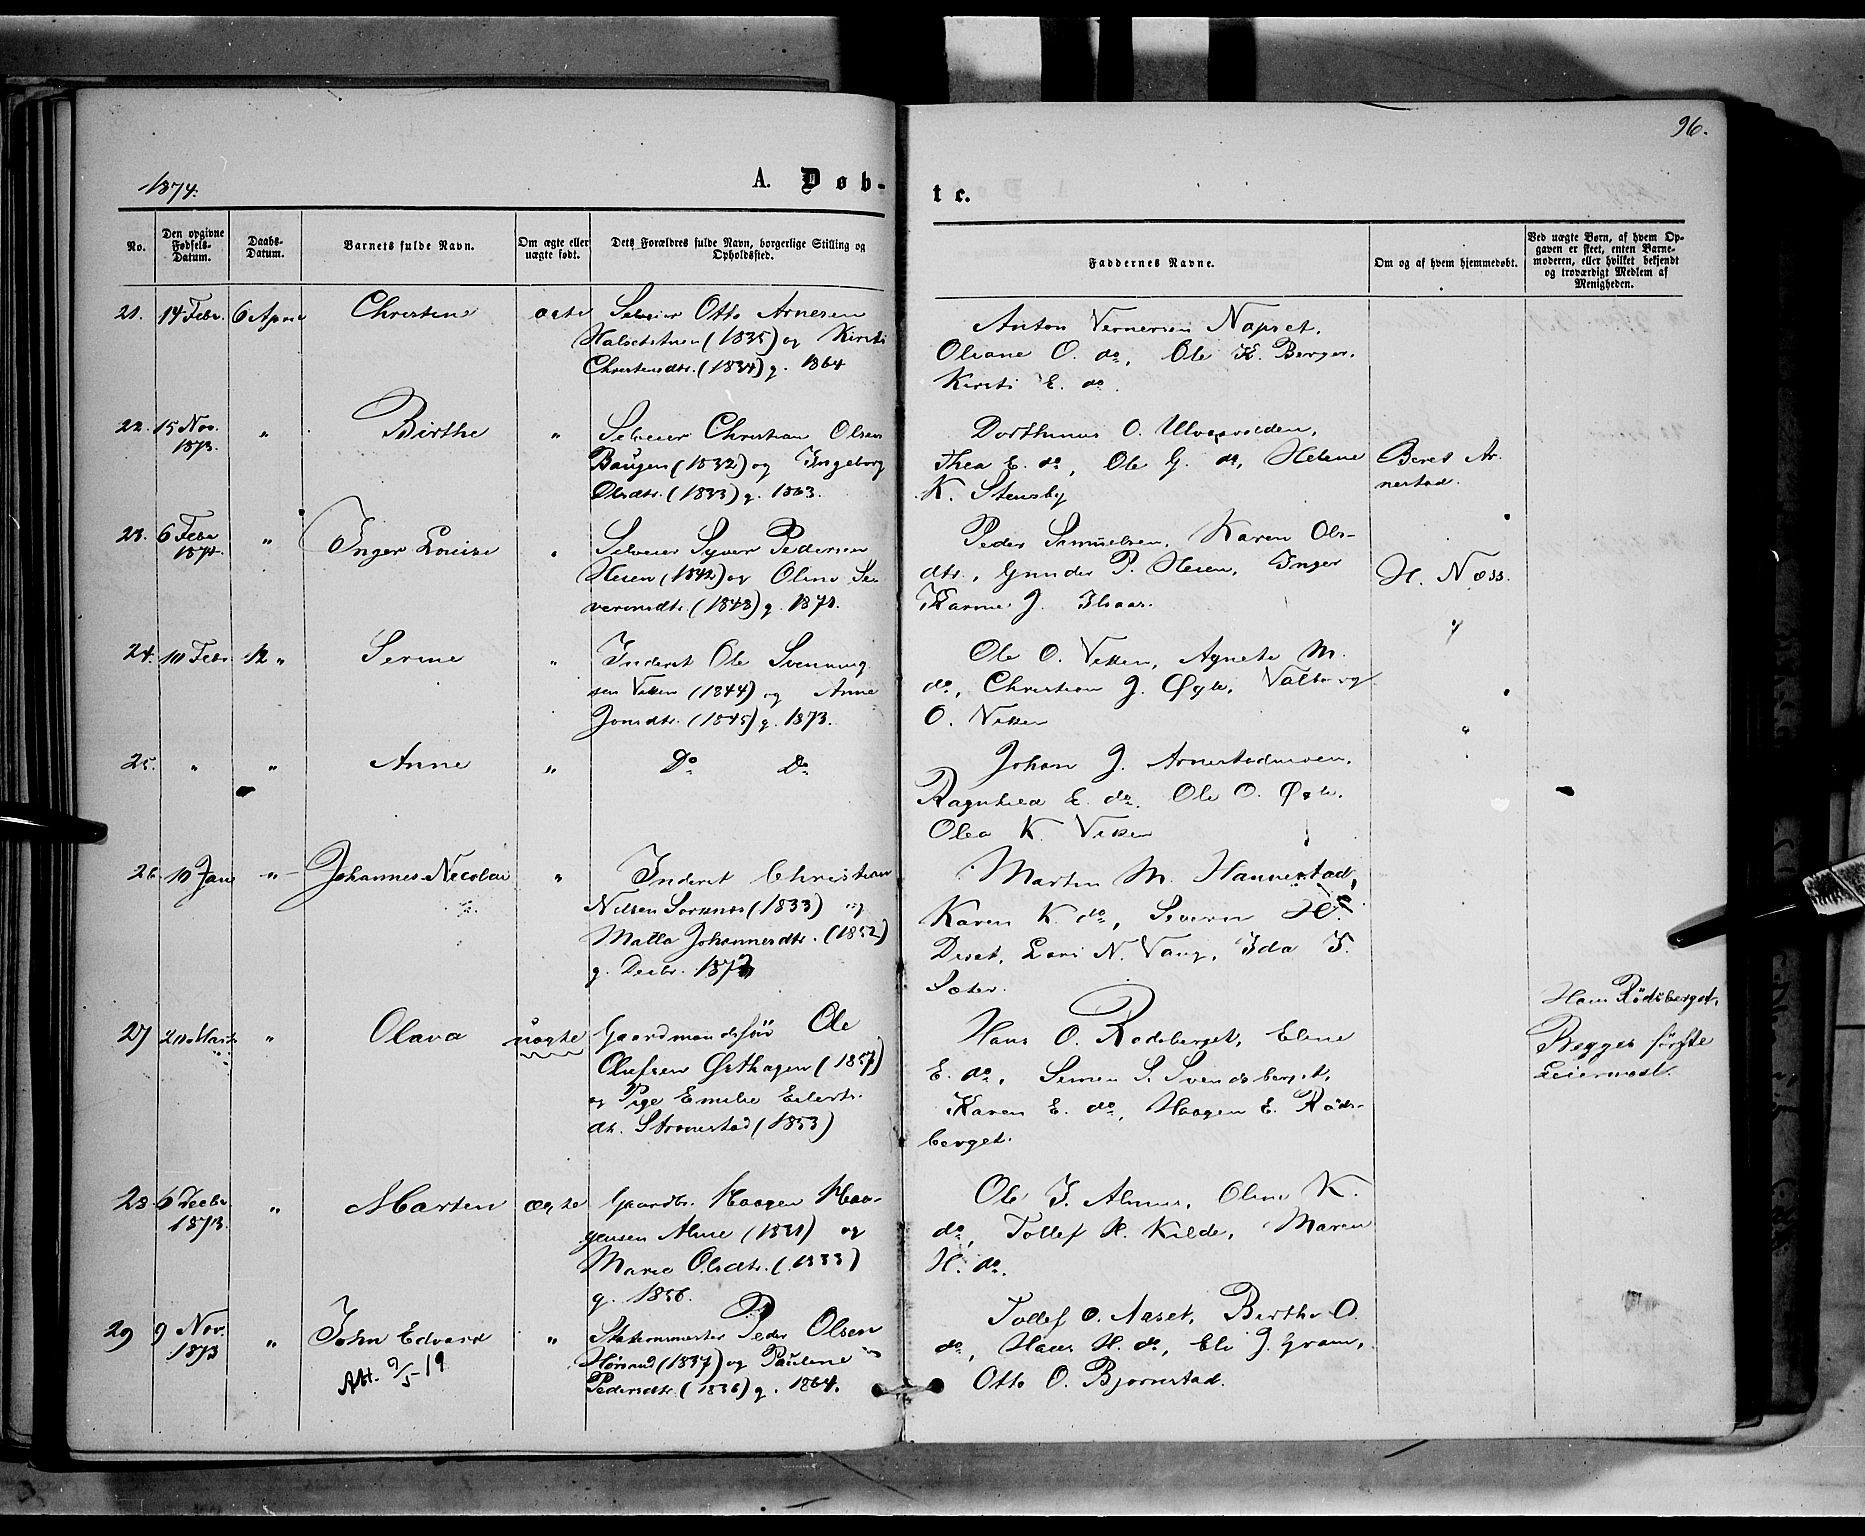 96.
1874.
A. Døb-
te.
No.
Den opgivne Fødsels-Datum.
Daabs-Datum.
Barnets fulde Navn.
Om ægte eller uægte født.
Dets Forældres fulde Navn, borgerlige Stilling og Opholdssted.
Faddernes Navne.
Om og af hvem hjemmedøbt.
Ved uægte Børn, af hvem Opgaven er skeet, enten Barnemoderen, eller hvilket bekjendt og troværdigt Medlem af Menigheden.
21. 14 Febr. 6 April Christine ægte Selveier Otto Arnesen
(1835) og Kirsti
Christensdtr. (1834) g. 1864
Anton Vernersen Napset,
Oliane O. do, Ole K. Berger,
Kirsti E. do
22. 15 Nov. 1873. " Birthe " Selveier Christian Olsen
Baugen (1832) og Ingeborg
Olsdtr. (1833) g. 1863.
Dorthinus O. Ulvesvolden,
Thea E. do, Ole G. do, Helene
K. Stensby
Beret Ar-
nestad.
23. 6 Febr 1874. " Inger Louise " Selveier Syver Pedersen
Hesen (1842) og Oline Se-
verinsdtr. (1848) g. 1870.
Peder Samuelsen, Karen Ols-
dtr., Gunder P. Hesen, Inger
Karine J. Ilsaas.
H. Næss.
24. 10 Febr. 12 " Serine " Inderst Ole Svenning-
sen Viken (1844) og Anne
Jonsdtr. (1845) g. 1873.
Ole O. Viken, Agnete M.
do, Christian J. Øgle, Valborg
O. Viken
"
25. " " Anne " Do Do
Johan J. Arnestadmoen,
Ragnhild E. do. Ole O. Øgle,
Olea K. Viken
"
26 10 Jan " Johannes Nicolai " Inderst Christian
Nilsen Sorknes (1833) og
Matia Johannesdtr. (1852)
g. Decbr. 1873
Martin M. Hannestad,
Karen K do, Severin H.
Deset, Lars N. Vang, Ida I.
Sæter.
27 20 Marts " Olava uægte Gaardmandssøn Ole
Olufsen Østhagen (1857)
og Pige Emilie Eilerts-
dt. Stromstad (1853)
Hans O. Rødsberget, Eline
E. do, Simen S. Svendsberget,
Karen E. do, Haagen E. Røds-
berget.
Hans Rødsberget,
Begges første
Leiermaal.
28 6 Decbr 1873. " Marten ægte Gaardbr. Haagen Haa-
gensen Alme (1831) og
Marie Olsdtr. (1833)
g. 1856.
Ole I. Almes, Oline K.
do, Tollef H. Kilde, Maren
H. do.
29 9 Nov. 1873 " John Edvard " Stationsmester Peder Olsen
(1837) og Pauline
Pedersdtr. (1836) g. 1864.
Att. 9/5-19
Tollef O. Aaset, Birthe O.
do, Hans H. do, Eli J. Gram,
Otto O. Bjørnestad.